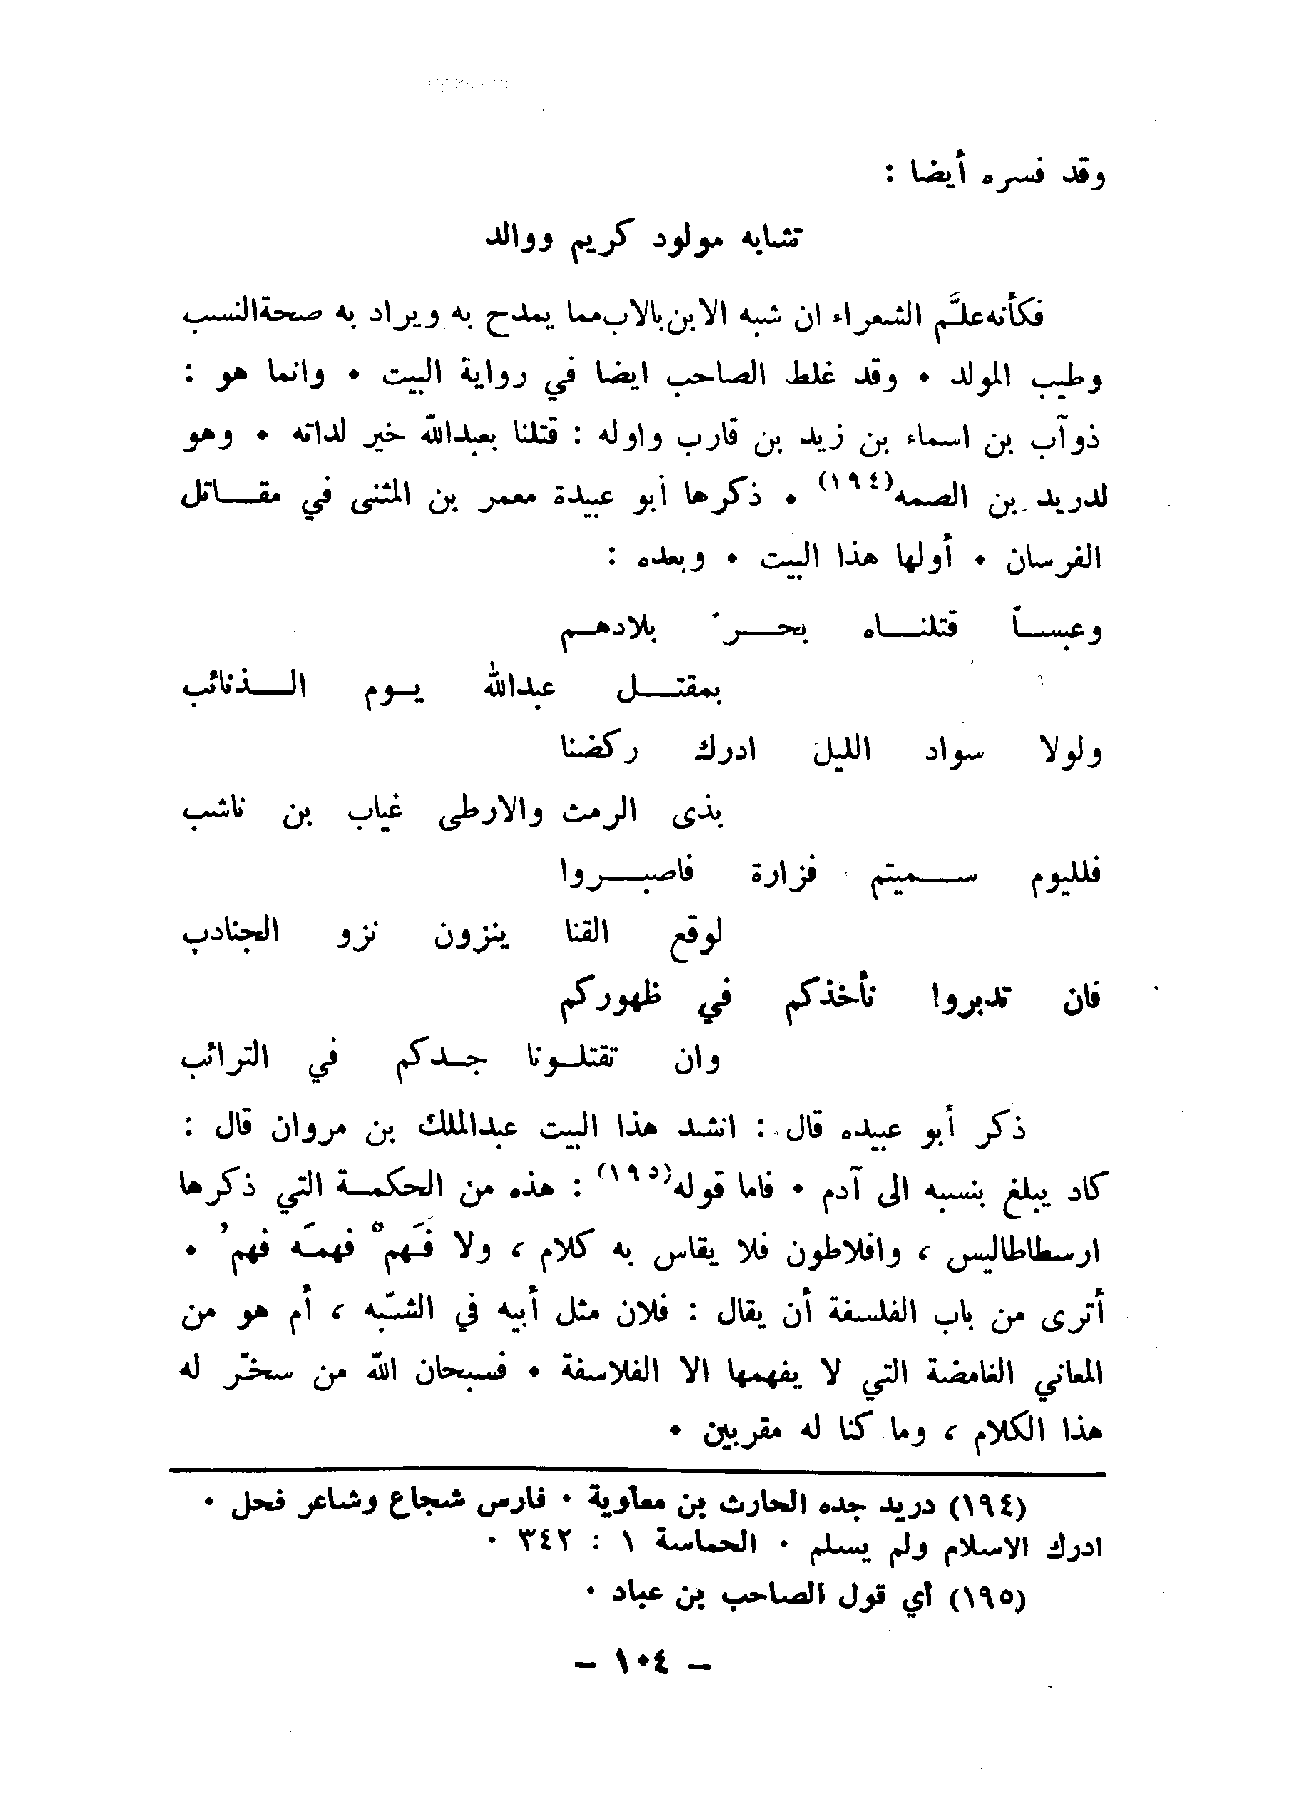 وقد فسره أيضا :
تشابه مولود كريم ووالد
فكأنه علَّم الشعراء ان شبه الابن بالاب مما يمدح به ويراد به صحة النسب
وطيب المولد • وقد غلط الصاحب ايضا في رواية البيت • وانما هو :
ذوآب بن اسماء بن زيد بن قارب واوله : قتلنا بعبدالله خير لداته • وهو
لدريد بن الصمه(١٩٤) • ذكرها أبو عبيدة معمر بن المثنى في مقــاتل
الفرسان • أولها هذا البيت • وبعده :
وعبســاً قتلنــاه بحــر بلادهــم
بمقتــل عبدالله يــوم الــذنائب
ولولا سواد الليل ادرك ركضنا
بذى الرمث والارطى غياب بن ناشب
فلليوم ســميتم فزارة فاصبــروا
لوقع القنا ينزون نزو الجنادب
فان تدبروا نأخذكم في ظهوركم
وان تقتلــونا جــدكم في الترائب
ذكر أبو عبيده قال : انشد هذا البيت عبدالملك بن مروان قال :
كاد يبلغ بنسبه الى آدم • فاما قوله(١٩٥) : هذه من الحكمــة التي ذكرها
ارسطاطاليس ، وافلاطون فلا يقاس به كلام ، ولا فَهمْ فهمَه فهمُ •
أترى من باب الفلسفة أن يقال : فلان مثل أبيه في الشبّه ، أم هو من
المعاني الغامضة التي لا يفهمها الا الفلاسفة • فسبحان الله من سخّر له
هذا الكلام ، وما كنا له مقربين •
(١٩٤) دريد جده الحارث بن معاوية • فارس شجاع وشاعر فحل •
ادرك الاسلام ولم يسلم • الحماسة ١ : ٣٤٢ •
(١٩٥) أي قول الصاحب بن عباد •
— ١٠٤ —